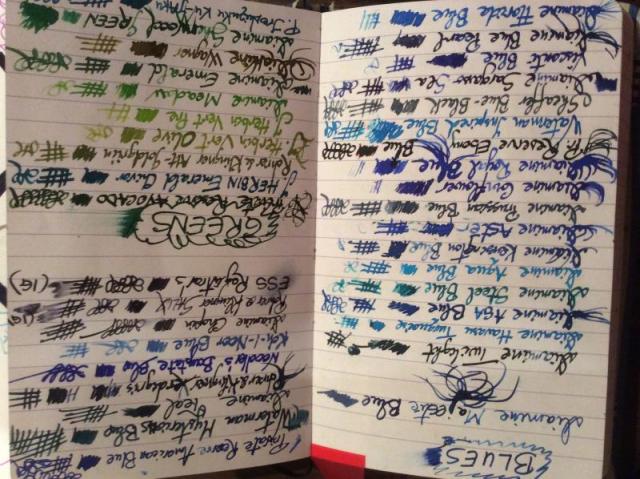 BLUES
Diamine Majestic Blue
Diamine Twilight
Diamine Havasu Turquoise
Diamine ASA Blue
Diamine Steel Blue
Diamine Aqua Blue
Diamine Kensington Blue
Diamine Aster
Diamine Prussian Blue
Diamine Cornflower
Diamine Royal Blue
Pr. Reserve Ebony Blue
Waterman Inspired Blue
Sheaffer Blue-Black
Diamine Sargasso Sea
Visconti Blue
Diamine Blue Pearl
Diamine Florida Blue
Private Reserve American Blue
Waterman Mysterious Blue
Diamine Teal
Rohrer & Klingner Verdigris
Noodler's Baystate Blue
Koh-I-Noor Blue
Diamine Chopin
Rohrer & Klingner SALIX (IG)
ESS Registrar's (IG)
GREENS
Private Reserve Avocado
J HERBIN Emerald Chivor
Rohrer & Klingner Alt Goldgrün
J Herbin Vert Olive
J Herbin Vert Pré
Diamine Meadow
Diamine Emerald
Diamine Wagner
Diamine Sherwood GREEN
P. Iroshizuku Ku-Jaku